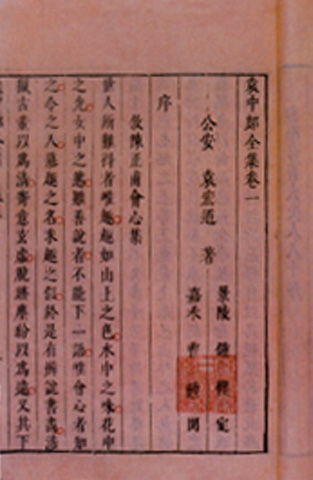 袁中郎全集卷一
公安 袁宏道 著
景陵 鍾惺 定
嘉禾 閱
序
敘陳正甫會心集
世人所難得者唯趣趣如山上之色水中之味花中
之光女中之態雖善說者不能下一語唯會心者知
之今之人慕趣之名求趣之似於是有辨說書畫涉
獵古董以爲清寄意玄虛脫跡塵紛以爲遠又其下